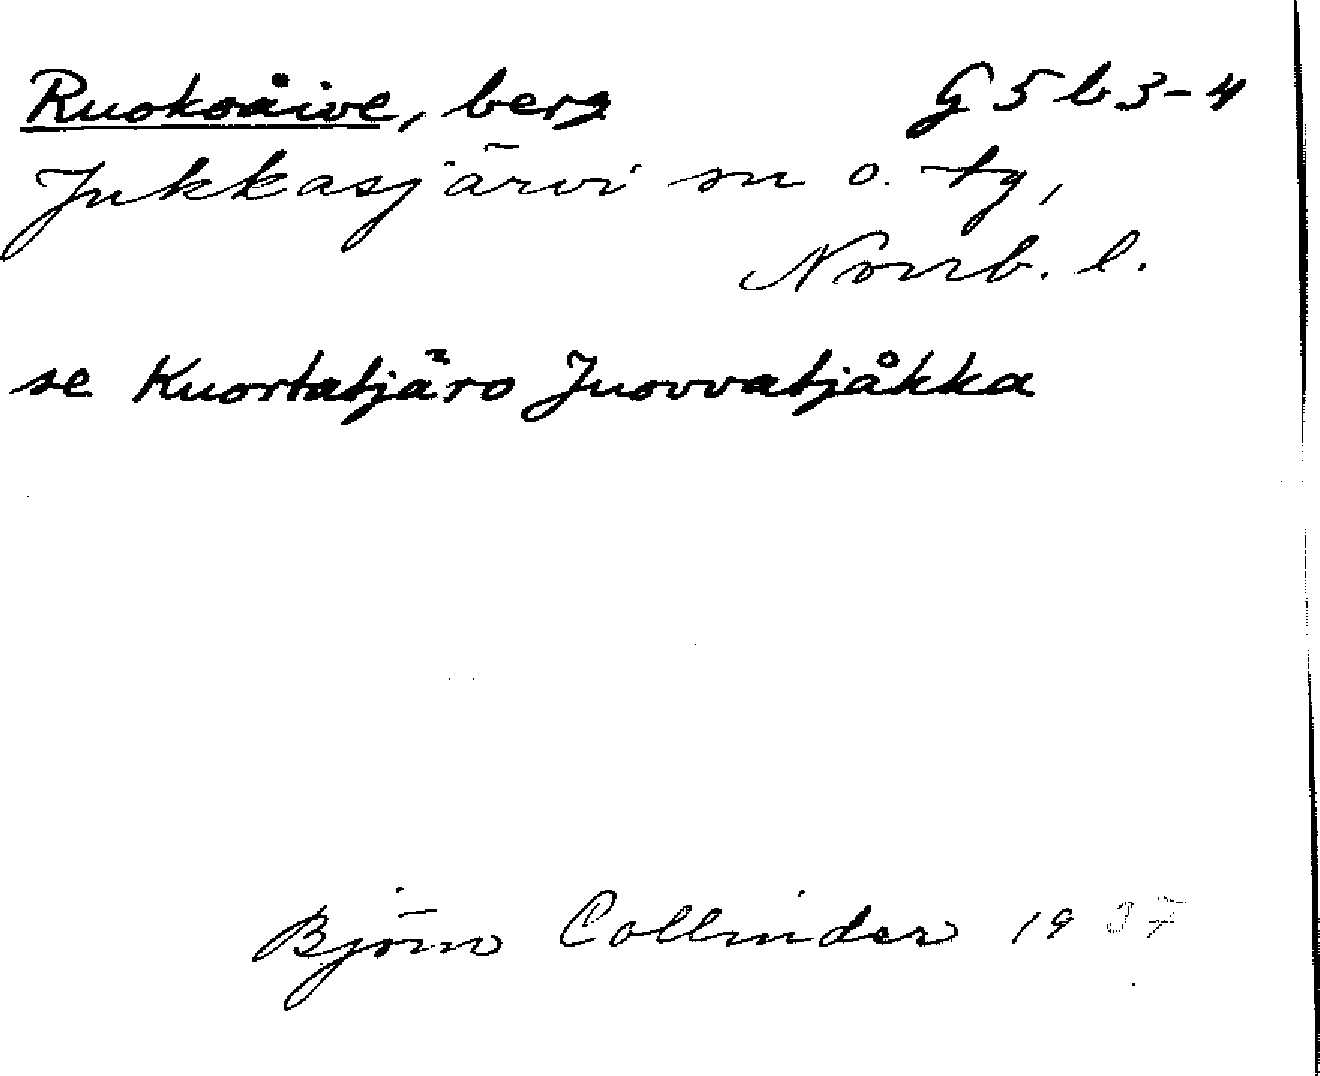 Ruoksåive, berg G 5 b 3-4
Jukkasjärvi sn o. tg,
Norrb. l.
se Kuortatjäro Juovvatjåkka
Björn Collinder 1937